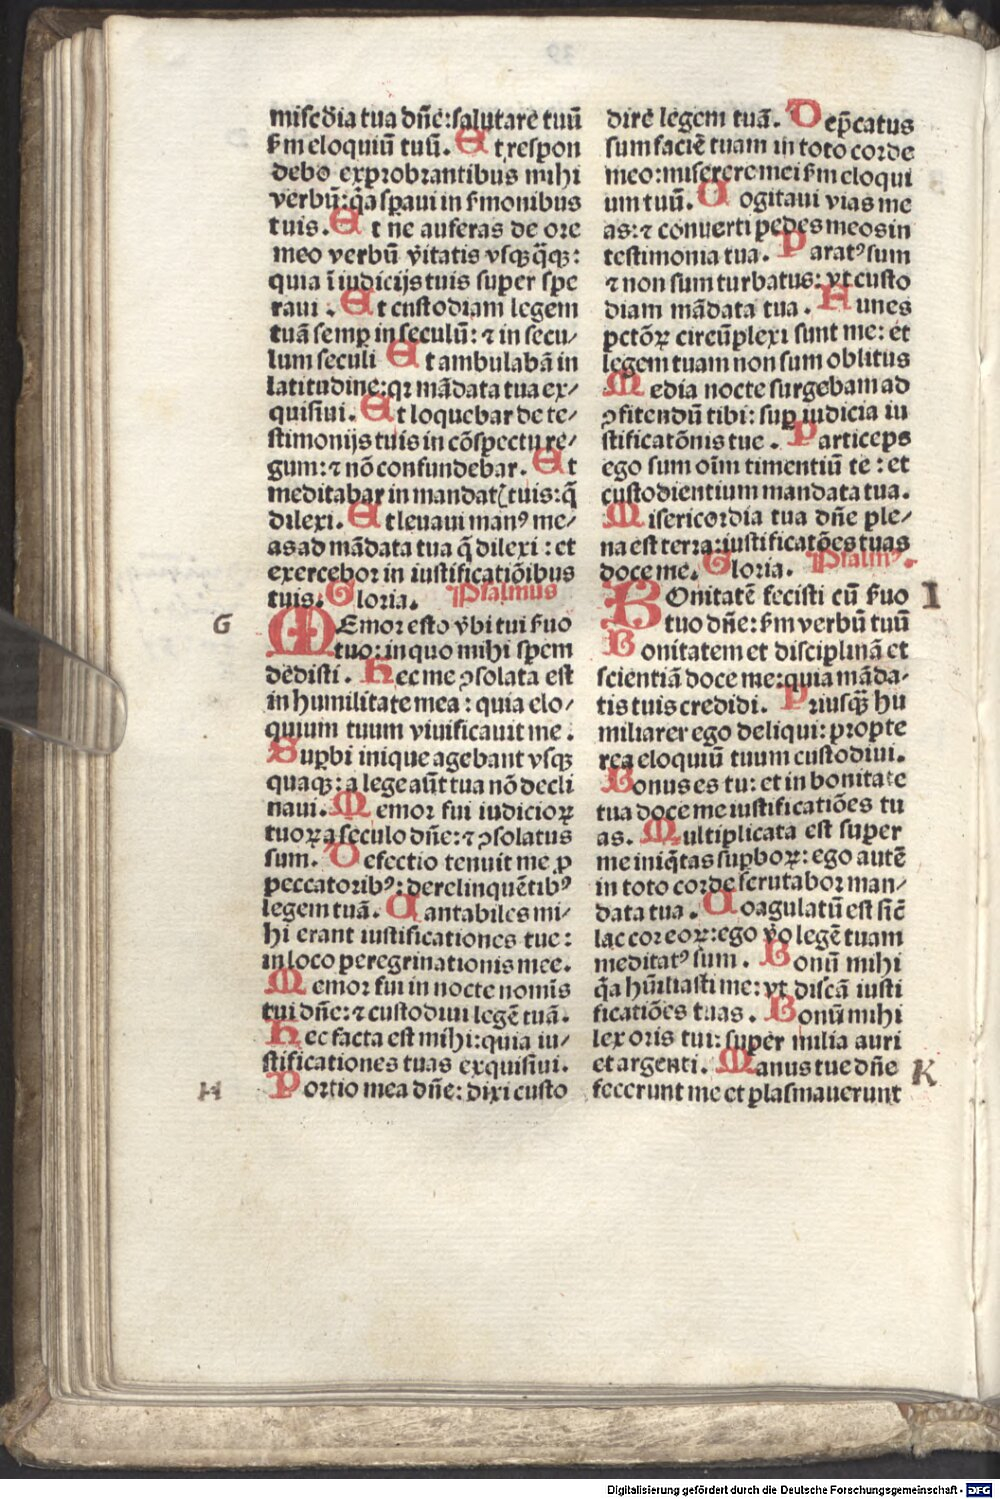 misc̄dia tua dn̄e: salutare tuū
ẜm eloquiū tuū. Et respon
debo exprobrantibus mihi
verbū: q̄a sꝑaui in ẜmonibus
tuis. Et ne auferas de ore
meo verbū v̄itatis vsqꝫ q̄qꝫ:
quia ī iudicijs tuis super spe
raui. Et custodiam legem
tuā semꝑ in seculū: ⁊ in secu⸗
lum seculi Et ambulabā in
latitudine: qꝛ mādata tua ex⸗
quisiui. Et loquebar de te⸗
stimonijs tuis in cōspectu re⸗
gum: ⁊ nō confundebar. Et
meditabar in mandatꝭ tuis: q̄
dilexi. Et leuaui manꝰ me⸗
as ad mādata tua q̄ dilexi: et
exercebor in iustificatiōibus
tuis. Gloria. Psalmus
G MEmor esto v̄bi tui ẜuo
tuo: in quo mihi spem
dedisti. Hec me ꝯsolata est
in humilitate mea: quia elo⸗
quium tuum viuificauit me.
Suꝑbi inique agebant vsqꝫ
quaqꝫ: a lege aūt tua nō decli
naui. Memor fui iudicioꝝ
tuoꝝ a seculo dn̄e: ⁊ ꝯsolatus
sum. Defectio tenuit me ꝓ
peccatoribꝰ: derelinquētibꝰ
legem tuā. Cantabiles mi⸗
hi erant iustificationes tue:
in loco peregrinationis mee.
Memor fui in nocte nomīs
tui dn̄e: ⁊ custodiui legē tuā.
Hec facta est mihi: quia iu⸗
stificationes tuas exquisiui.
H Portio mea dn̄e: dixi custo
dire legem tuā. Dep̄catus
sum faciē tuam in toto corde
meo: miserere mei ẜm eloqui
um tuū. Cogitaui vias me
as: ⁊ conuerti pedes meos in
testimonia tua. Paratꝰ sum
⁊ non sum turbatus: vt custo
diam mādata tua. Funes
pctōꝝ circūplexi sunt me: et
legem tuam non sum oblitus
Media nocte surgebam ad
ꝯfitendū tibi: suꝑ iudicia iu
stificatōnis tue. Particeps
ego sum oīm timentiū te: et
custodientium mandata tua.
Misericordia tua dn̄e ple⸗
na est terra: iustificatōes tuas
doce me. Gloria. Psalmꝰ.
BOnitatē fecisti cū ẜuo I
tuo dn̄e: ẜm verbū tuū
Bonitatem et disciplinā et
scientiā doce me: quia māda⸗
tis tuis credidi. Priusqꝫ̄ hu
miliarer ego deliqui: propte
rea eloquiū tuum custodiui.
Bonus es tu: et in bonitate
tua doce me iustificatiōes tu
as. Multiplicata est super
me iniq̄tas suꝑboꝝ: ego autē
in toto corde scrutabor man⸗
data tua. Coagulatū est sic̄
lac cor eoꝝ: ego v̄o legē tuam
meditatꝰ sum. Bonū mihi
q̄a hūiliasti me: vt discā iusti
ficatiōes tuas. Bonū mihi
lex oris tui: super milia auri
et argenti. Manus tue dn̄e K
fecerunt me et plasmauerunt
Digitalisierung gefördert durch die Deutsche Forschungsgemeinschaft - DFG